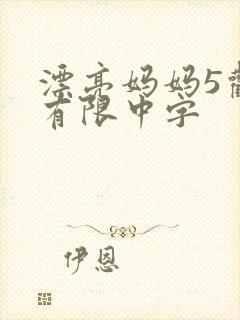 漂亮妈妈5
有限中字
伊恩